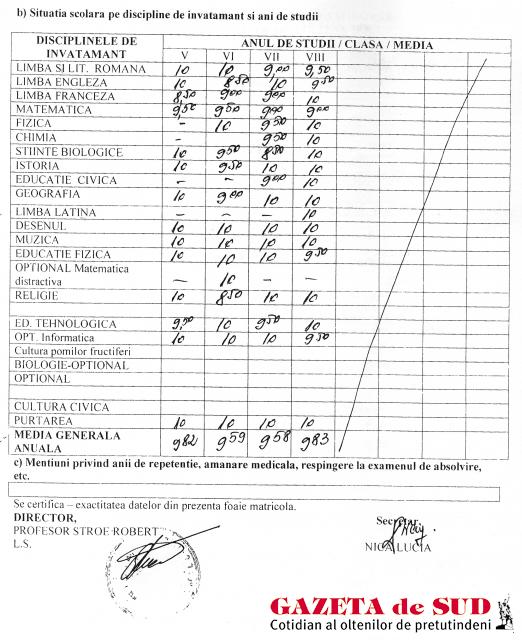 b) Situatia scolara pe discipline de invatamant si ani de studii
DISCIPLINELE DE INVATAMANT ANUL DE STUDII / CLASA / MEDIA
V VI VII VIII
LIMBA SI LIT. ROMANA 10 10 9,00 9,50
LIMBA ENGLEZA 10 8,50 10 9,50
LIMBA FRANCEZA 8,50 9,00 9,00 10
MATEMATICA 9,50 9,50 9,00 9,00
FIZICA – 10 9,50 10
CHIMIA – 9,50 10
STIINTE BIOLOGICE 10 9,50 8,50 10
ISTORIA 10 9,50 10 10
EDUCATIE CIVICA – – 9,00 10
GEOGRAFIA 10 9,00 10 10
LIMBA LATINA – – – 10
DESENUL 10 10 10 10
MUZICA 10 10 10 10
EDUCATIE FIZICA 10 10 10 9,50
OPTIONAL Matematica
distractiva – 10 – –
RELIGIE 10 8,50 10 10
ED. TEHNOLOGICA 9,50 10 9,50 10
OPT. Informatica 10 10 10 9,50
Cultura pomilor fructiferi
BIOLOGIE-OPTIONAL
OPTIONAL
CULTURA CIVICA
PURTAREA 10 10 10 10
MEDIA GENERALA
ANUALA 9,82 9,59 9,58 9,83
c) Mentiuni privind anii de repetentie, amanare medicala, respingere la examenul de absolvire,
etc.
Se certifica – exactitatea datelor din prezenta foaie matricola.
DIRECTOR, Secretar,
PROFESOR STROE ROBERT
L.S. NICA LUCIA
GAZETA de SUD
Cotidian al oltenilor de pretutindeni